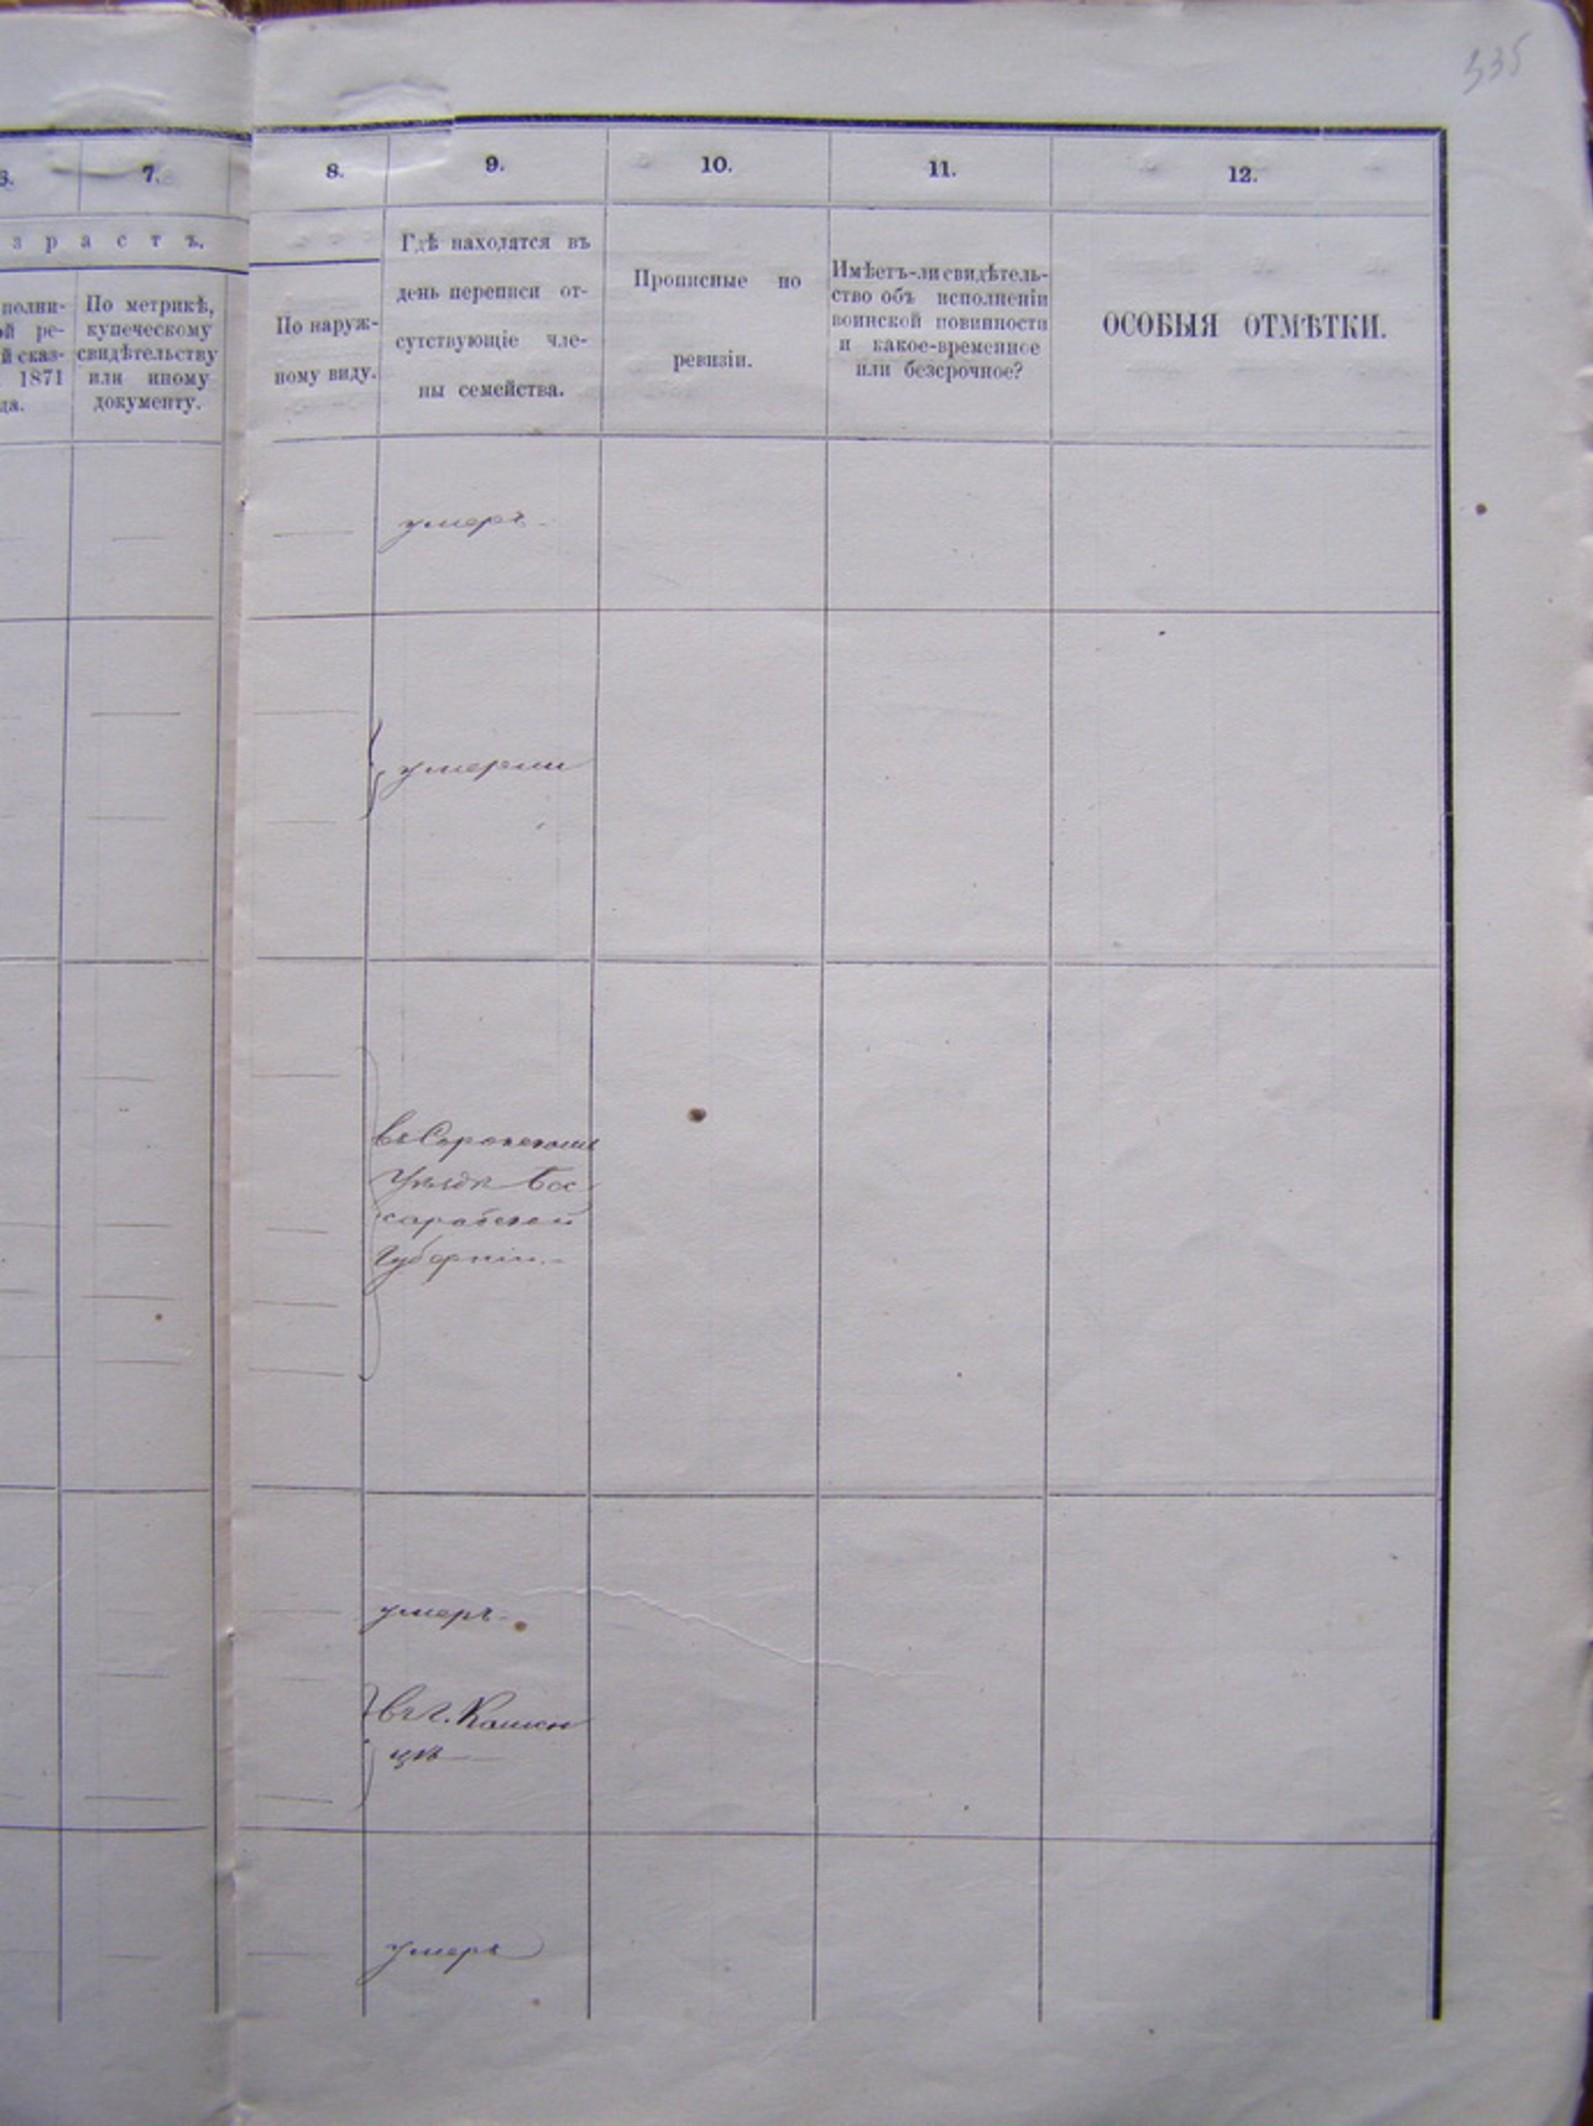 335
6. 7. 8. 9. 10. 11. 12.
зрастъ.
полни-
ой ре-
й сказ-
1871
да.
По метрикѣ,
купеческому
свидѣтельству
или иному
документу.
По наруж-
ному виду.
Гдѣ находятся въ
день переписи от-
сутствующіе чле-
ны семейства.
Прописные по
ревизіи.
Имѣетъ-ли свидѣтель-
ство объ исполненіи
воинской повинности
и какое-временное
или безсрочное?
ОСОБЫЯ ОТМѢТКИ.
умеръ
умерли
въ Сорокскомъ
Уѣздѣ Бес
сарабской
Губерніи.
умеръ
въ г. Каменѣ
цѣ
умеръ